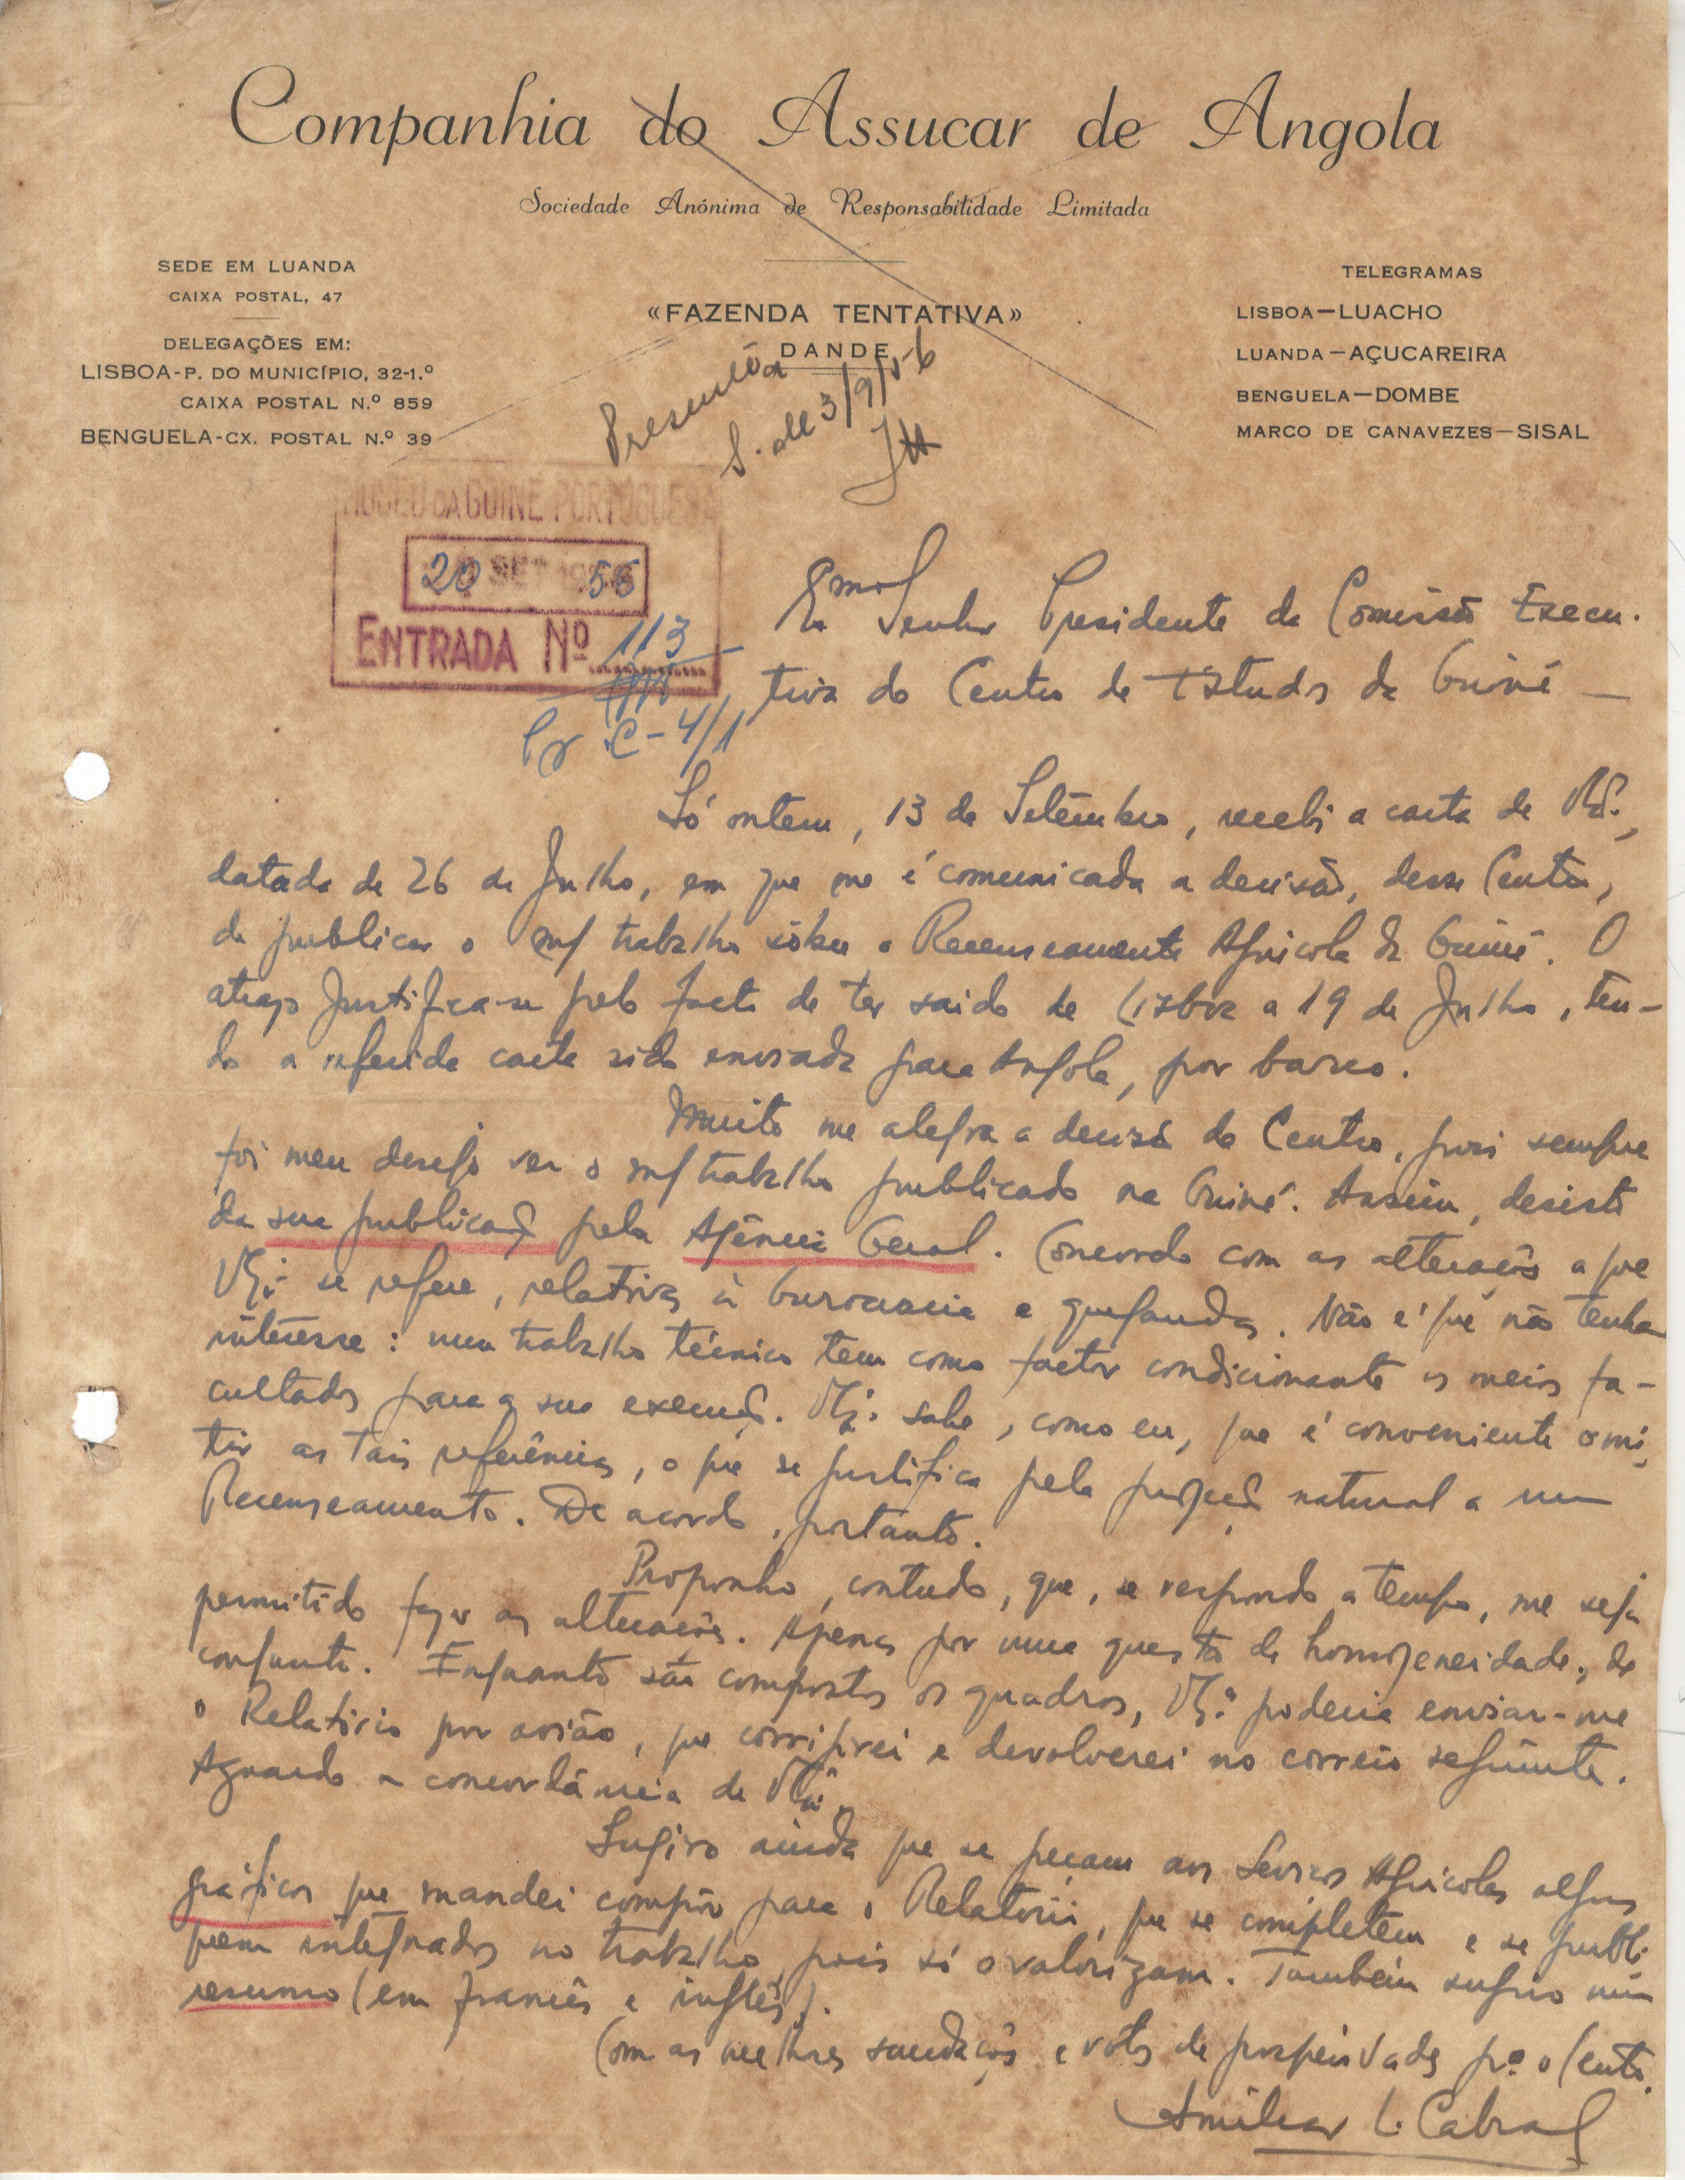 Companhia do Assucar de Angola
Sociedade Anónima de Responsabilidade Limitada
SEDE EM LUANDA
CAIXA POSTAL, 47
DELEGAÇÕES EM:
LISBOA-P. DO MUNICÍPIO, 32-1.º
CAIXA POSTAL N.º 859
BENGUELA-CX. POSTAL N.º 39
«FAZENDA TENTATIVA»
DANDE
TELEGRAMAS
LISBOA—LUACHO
LUANDA—AÇUCAREIRA
BENGUELA—DOMBE
MARCO DE CANAVEZES—SISAL
MUSEU DA GUINÉ PORTUGUESA
20 SET 56
ENTRADA Nº 113
C-4/1
Senhor Presidente da Comissão Execu-
tiva do Centro de Estudos da Guiné —
Só ontem, 13 de Setembro, recebi a carta de V.
datada de 26 de Julho, em que me é comunicada a decisão, desse Centro,
de publicar o trabalho sôbre o Recenseamento Agrícola da Guiné. O
atraso justifica-se pelo facto de ter saido de Lisboa a 19 de Julho, ten-
do a referida carta sido enviada para Angola, por barco.
Muito me alegra a decisão do Centro, pois sempre
foi meu desejo ver o trabalho publicado na Guiné. Assim, desisto
da sua publicação pela Agência Geral. Concordo com as alterações a que
se refere, relativas à burocracia e quejandas. Não é que não tenha
interesse: num trabalho técnico tem como factor condicionante os meios fa-
cultados para a sua execução. sabe, como eu, que é conveniente omi-
tir as tais referências, o que se justifica pela projecção natural a um
Recenseamento. De acordo, portanto.
Proponho, contudo, que, se respondo a tempo, me seja
permitido fazer as alterações. Apenas por uma questão de homogeneidade, de
conjunto. Enquanto são compostos os quadros, poderia enviar-me
o Relatório por avião, que corrigirei e devolverei no correio seguinte.
Aguardo a concordância de
Sugiro ainda que se peçam aos Serviços Agrícolas alguns
gráficos que mandei compôr para o Relatório, que se completem e se publi-
quem integrados no trabalho, pois só o valorizam. Também sugiro um
resumo (em francês e inglês).
Com as melhores saudações e votos de prosperidades pª o Centro.
Amílcar L. Cabral